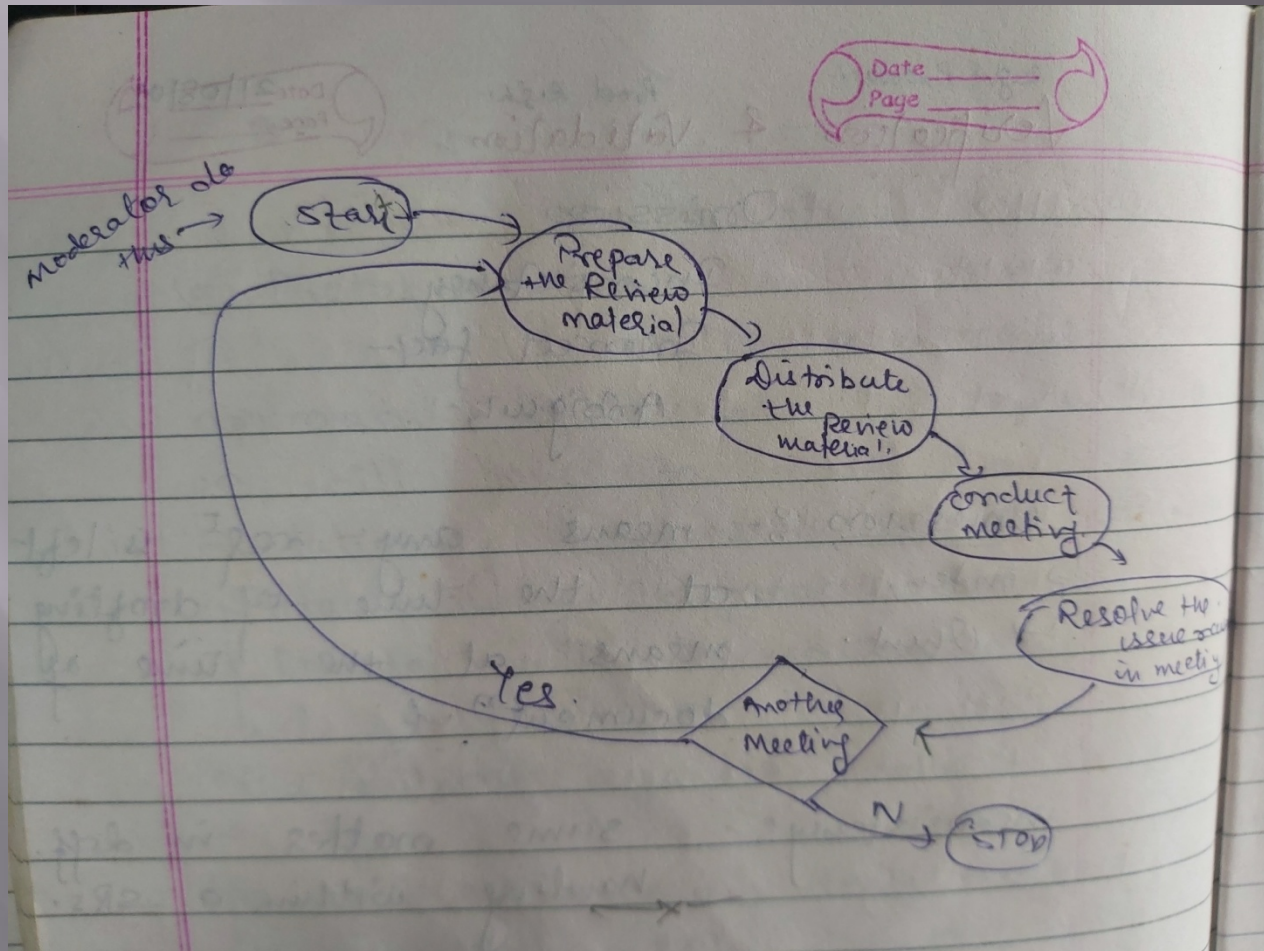 Date
Page
Moderator do
this →
Start
Prepare
the Review
material
Distribute
the
Review
material.
Conduct
meeting
Resolve the
issue
in meeting
Yes.
Another
Meeting
N
STOP